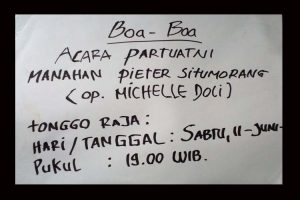 Boa-Boa
ACARA PARTUATNI
MANAHAN PIETER SITUMORANG
(OP. MICHELLE DOLI)
TONGGO RAJA:
HARI/TANGGAL: SABTU, 11-JUNI-
PUKUL : 19.00 WIB.